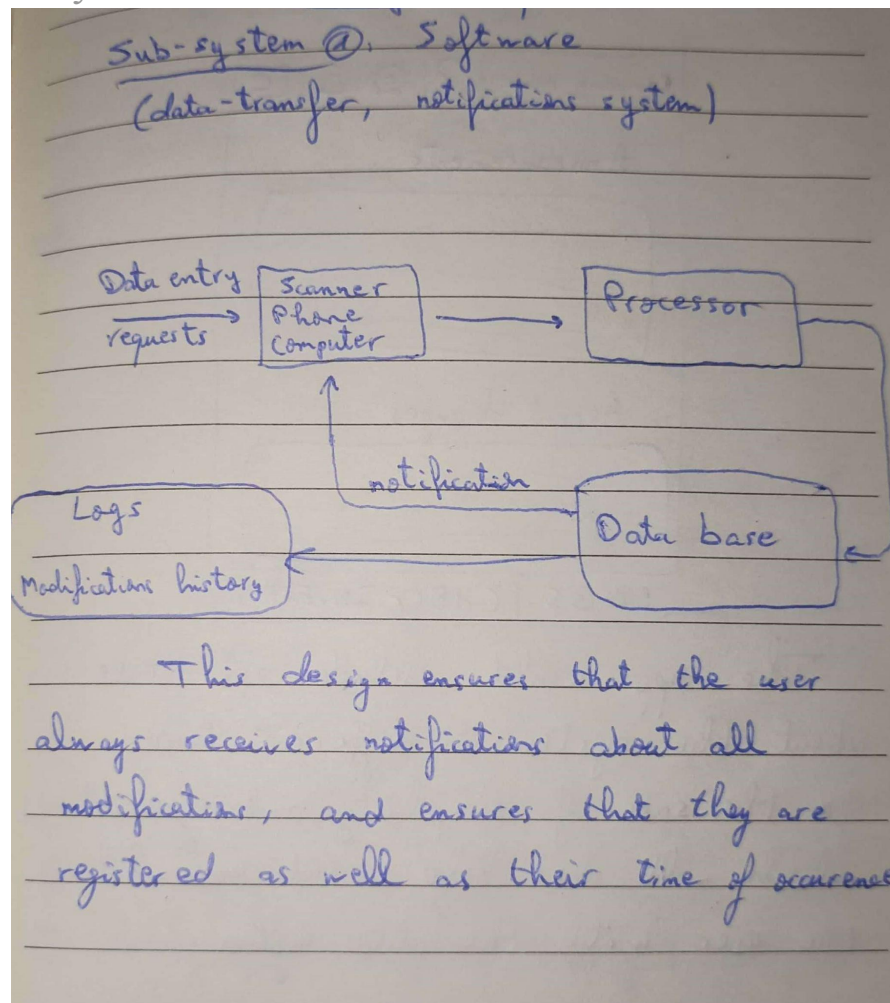 Sub-system @: Software
(data-transfer, notifications system)
Data entry
requests
Scanner
Phone
Computer
Processor
notification
Logs
Modifications history
Data base
This design ensures that the user
always receives notifications about all
modifications, and ensures that they are
registered as well as their time of occurence